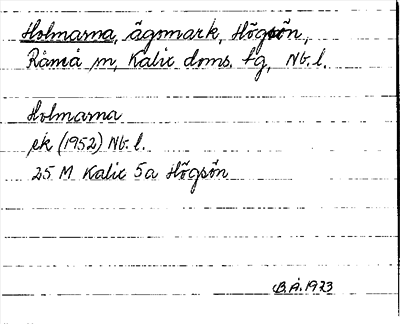 Holmarna, ägomark, Högsön,
Råneå sn, Kalix doms. tg, Nb. l.
Holmarna
ek (1952) Nb. l.
25 M Kalix 5a Högsön
B.Å. 1973